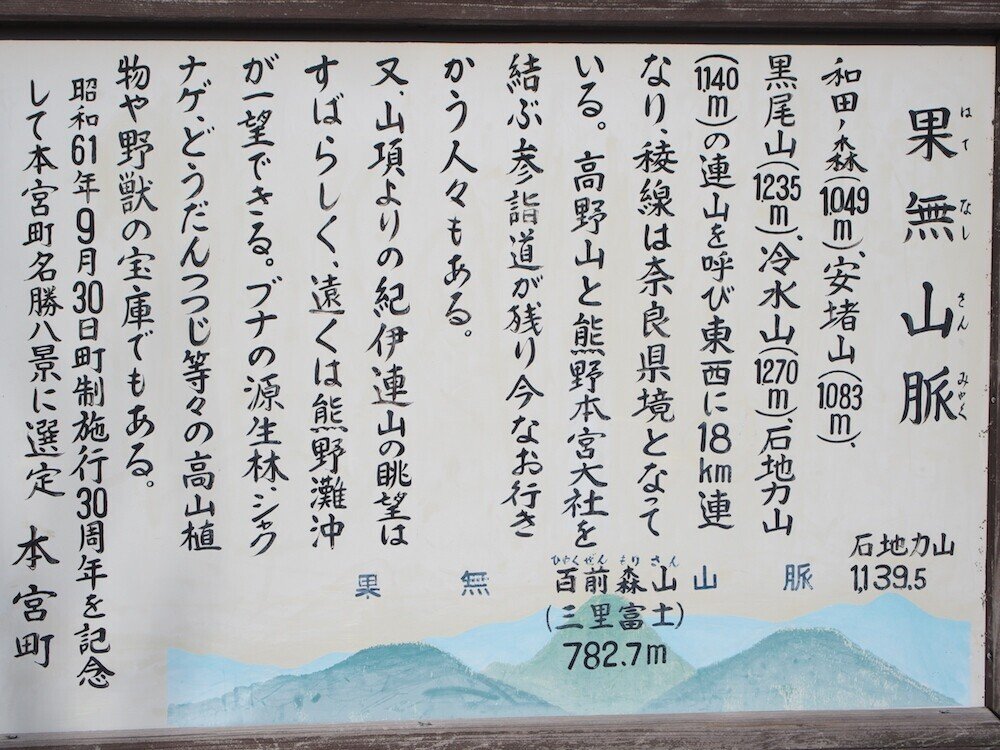 果無山脈
はてなしさんみゃく
和田ノ森(1,049m)、安堵山(1,083m)、
黒尾山(1235m)、冷水山(1270m)、石地力山
(1,140m)の連山を呼び東西に18km連
なり、稜線は奈良県境となって
いる。高野山と熊野本宮大社を
結ぶ参詣道が残り今なお行き
かう人々もある。
又、山項よりの紀伊連山の眺望は
すばらしく、遠くは熊野灘沖
が一望できる。ブナの源生林、シャク
ナゲ、どうだんつつじ等々の高山植
物や野獣の宝庫でもある。
昭和61年9月30日町制施行30周年を記念
して本宮町名勝八景に選定 本宮町
石地力山
1,139.5
果無山脈
ひゃくぜんもりさん
百前森山
(三里富士)
782.7m